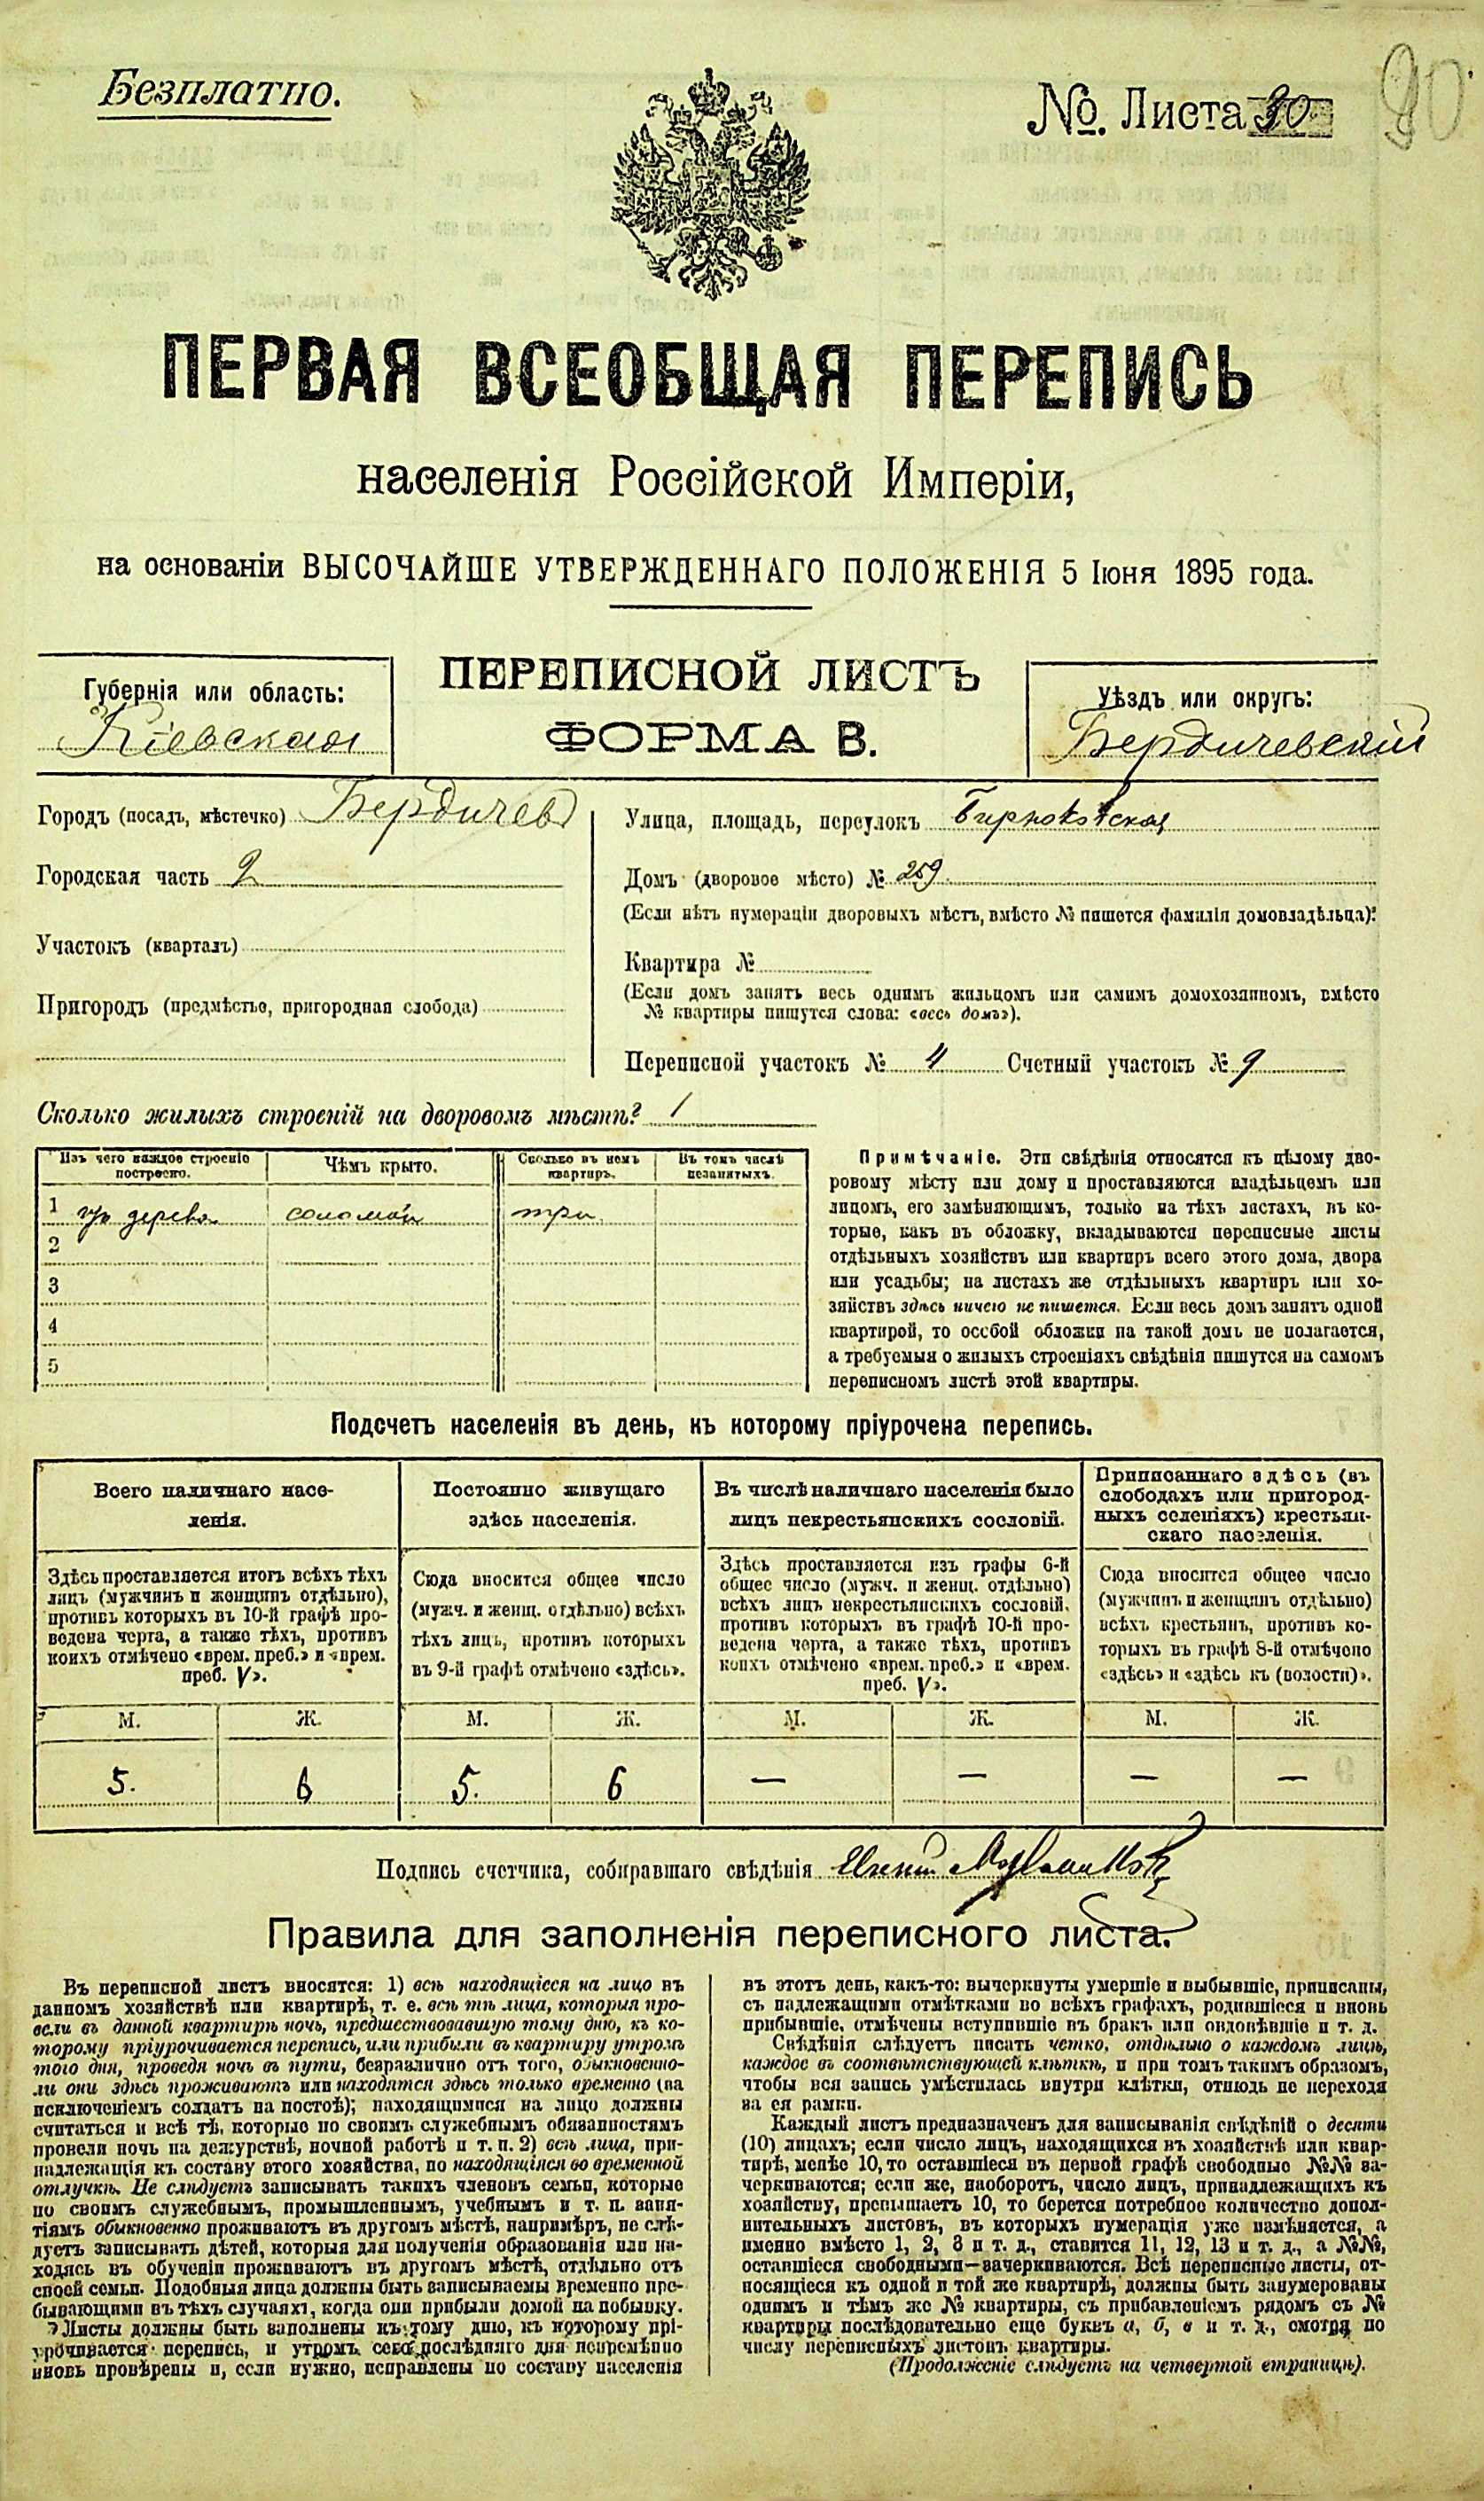 Безплатно.
№. Листа 90
90
ПЕРВАЯ ВСЕОБЩАЯ ПЕРЕПИСЬ
населенія Россійской Имперіи,
на основаніи ВЫСОЧАЙШЕ УТВЕРЖДЕННАГО ПОЛОЖЕНІЯ 5 Іюня 1895 года.
Губернія или область:
Кіевская
ПЕРЕПИСНОЙ ЛИСТЪ
ФОРМА В.
Уѣздъ или округъ:
Бердичевскій
Городъ (посадъ, мѣстечко) Бердичевъ
Городская часть 2
Участокъ (кварталъ)
Пригородъ (предмѣстье, пригородная слобода)
Улица, площадь, переулокъ
Домъ (дворовое мѣсто) № 259
(Если нѣтъ нумераціи дворовыхъ мѣстъ, вмѣсто № пишется фамилія домовладѣльца):
Квартира №
(Если домъ занятъ весь однимъ жильцомъ или самимъ домохозяиномъ, вмѣсто
№ квартиры пишутся слова: «весь домъ»).
Переписной участокъ № 4 Счетный участокъ № 9
Сколько жилыхъ строеній на дворовомъ мѣстѣ? 1
Изъ чего каждое строеніе
построено.
Чѣмъ крыто.
Сколько въ немъ
квартиръ.
Въ томъ числѣ
незанятыхъ.
1 изъ дерева соломой три
2
3
4
5
Примѣчаніе. Эти свѣдѣнія относятся къ цѣлому дво-
ровому мѣсту или дому и проставляются владѣльцемъ или
лицомъ, его замѣняющимъ, только на тѣхъ листахъ, въ ко-
торые, какъ въ обложку, вкладываются переписные листы
отдѣльныхъ хозяйствъ или квартиръ всего этого дома, двора
или усадьбы; на листахъ же отдѣльныхъ квартиръ или хо-
зяйствъ здѣсь ничего не пишется. Если весь домъ занятъ одной
квартирой, то особой обложки на такой домъ не полагается,
а требуемыя о жилыхъ строеніяхъ свѣдѣнія пишутся на самомъ
переписномъ листѣ этой квартиры.
Подсчетъ населенія въ день, къ которому пріурочена перепись.
Всего наличнаго насе-
ленія.
Постоянно живущаго
здѣсь населенія.
Въ числѣ наличнаго населенія было
лицъ некрестьянскихъ сословій.
Приписаннаго здѣсь (въ
слободахъ или пригород-
ныхъ селеніяхъ) крестьян-
скаго населенія.
Здѣсь проставляется итогъ всѣхъ тѣхъ
лицъ (мужчинъ и женщинъ отдѣльно),
противъ которыхъ въ 10-й графѣ про-
ведена черта, а также тѣхъ, противъ
коихъ отмѣчено «врем. преб.» и «врем.
преб. V».
Сюда вносится общее число
(мужч. и женщ. отдѣльно) всѣхъ
тѣхъ лицъ, противъ которыхъ
въ 9-й графѣ отмѣчено «здѣсь».
Здѣсь проставляется изъ графы 6-й
общее число (мужч. и женщ. отдѣльно)
всѣхъ лицъ некрестьянскихъ сословій,
противъ которыхъ въ графѣ 10-й про-
ведена черта, а также тѣхъ, противъ
коихъ отмѣчено «врем. преб.» и «врем.
преб. V».
Сюда вносится общее число
(мужчинъ и женщинъ отдѣльно)
всѣхъ крестьянъ, противъ ко-
торыхъ въ графѣ 8-й отмѣчено
«здѣсь» и «здѣсь къ (волости)».
М. Ж. М. Ж. М. Ж. М. Ж.
5. 6 5. 6 — — — —
Подпись счетчика, собиравшаго свѣдѣнія
Правила для заполненія переписного листа.
Въ переписной листъ вносятся: 1) всѣ находящіеся на лицо въ
данномъ хозяйствѣ или квартирѣ, т. е. всѣ тѣ лица, которыя про-
вели въ данной квартирѣ ночь, предшествовавшую тому дню, къ ко-
торому пріурочивается перепись, или прибыли въ квартиру утромъ
того дня, проведя ночь въ пути, безразлично отъ того, обыкновенно-
ли они здѣсь проживаютъ или находятся здѣсь только временно (за
исключеніемъ солдатъ на постоѣ); находящимися на лицо должны
считаться и всѣ тѣ, которые по своимъ служебнымъ обязанностямъ
провели ночь на дежурствѣ, ночной работѣ и т. п. 2) всѣ лица, при-
надлежащія къ составу этого хозяйства, но находящіяся во временной
отлучкѣ. Не слѣдуетъ записывать такихъ членовъ семьи, которые
по своимъ служебнымъ, промышленнымъ, учебнымъ и т. п. заня-
тіямъ обыкновенно проживаютъ въ другомъ мѣстѣ, напримѣръ, не слѣ-
дуетъ записывать дѣтей, которыя для полученія образованія или на-
ходясь въ обученіи проживаютъ въ другомъ мѣстѣ, отдѣльно отъ
своей семьи. Подобныя лица должны быть записываемы временно пре-
бывающими въ тѣхъ случаяхъ, когда они прибыли домой на побывку.
Листы должны быть заполнены къ тому дню, къ которому прі-
урочивается перепись, и утромъ сего послѣдняго дня непремѣнно
вновь провѣрены и, если нужно, исправлены по составу населенія
въ этотъ день, какъ-то: вычеркнуты умершіе и выбывшіе, приписаны,
съ надлежащими отмѣтками во всѣхъ графахъ, родившіеся и вновь
прибывшіе, отмѣчены вступившіе въ бракъ или овдовѣвшіе и т. д.
Свѣдѣнія слѣдуетъ писать четко, отдѣльно о каждомъ лицѣ,
каждое въ соотвѣтствующей клѣткѣ, и при томъ такимъ образомъ,
чтобы вся запись умѣстилась внутри клѣтки, отнюдь не переходя
за ея рамки.
Каждый листъ предназначенъ для записыванія свѣдѣній о десяти
(10) лицахъ; если число лицъ, находящихся въ хозяйствѣ или квар-
тирѣ, менѣе 10, то оставшіеся въ первой графѣ свободные №№ за-
черкиваются; если же, наоборотъ, число лицъ, принадлежащихъ къ
хозяйству, превышаетъ 10, то берется потребное количество допол-
нительныхъ листовъ, въ которыхъ нумерація уже измѣняется, а
именно вмѣсто 1, 2, 3 и т. д., ставится 11, 12, 13 и т. д., а №№,
оставшіеся свободными—зачеркиваются. Всѣ переписные листы, от-
носящіеся къ одной и той же квартирѣ, должны быть занумерованы
однимъ и тѣмъ же № квартиры, съ прибавленіемъ рядомъ съ №
квартиры послѣдовательно еще буквъ а, б, в и т. д., смотря по
числу переписныхъ листовъ квартиры.
(Продолженіе слѣдуетъ на четвертой страницѣ).